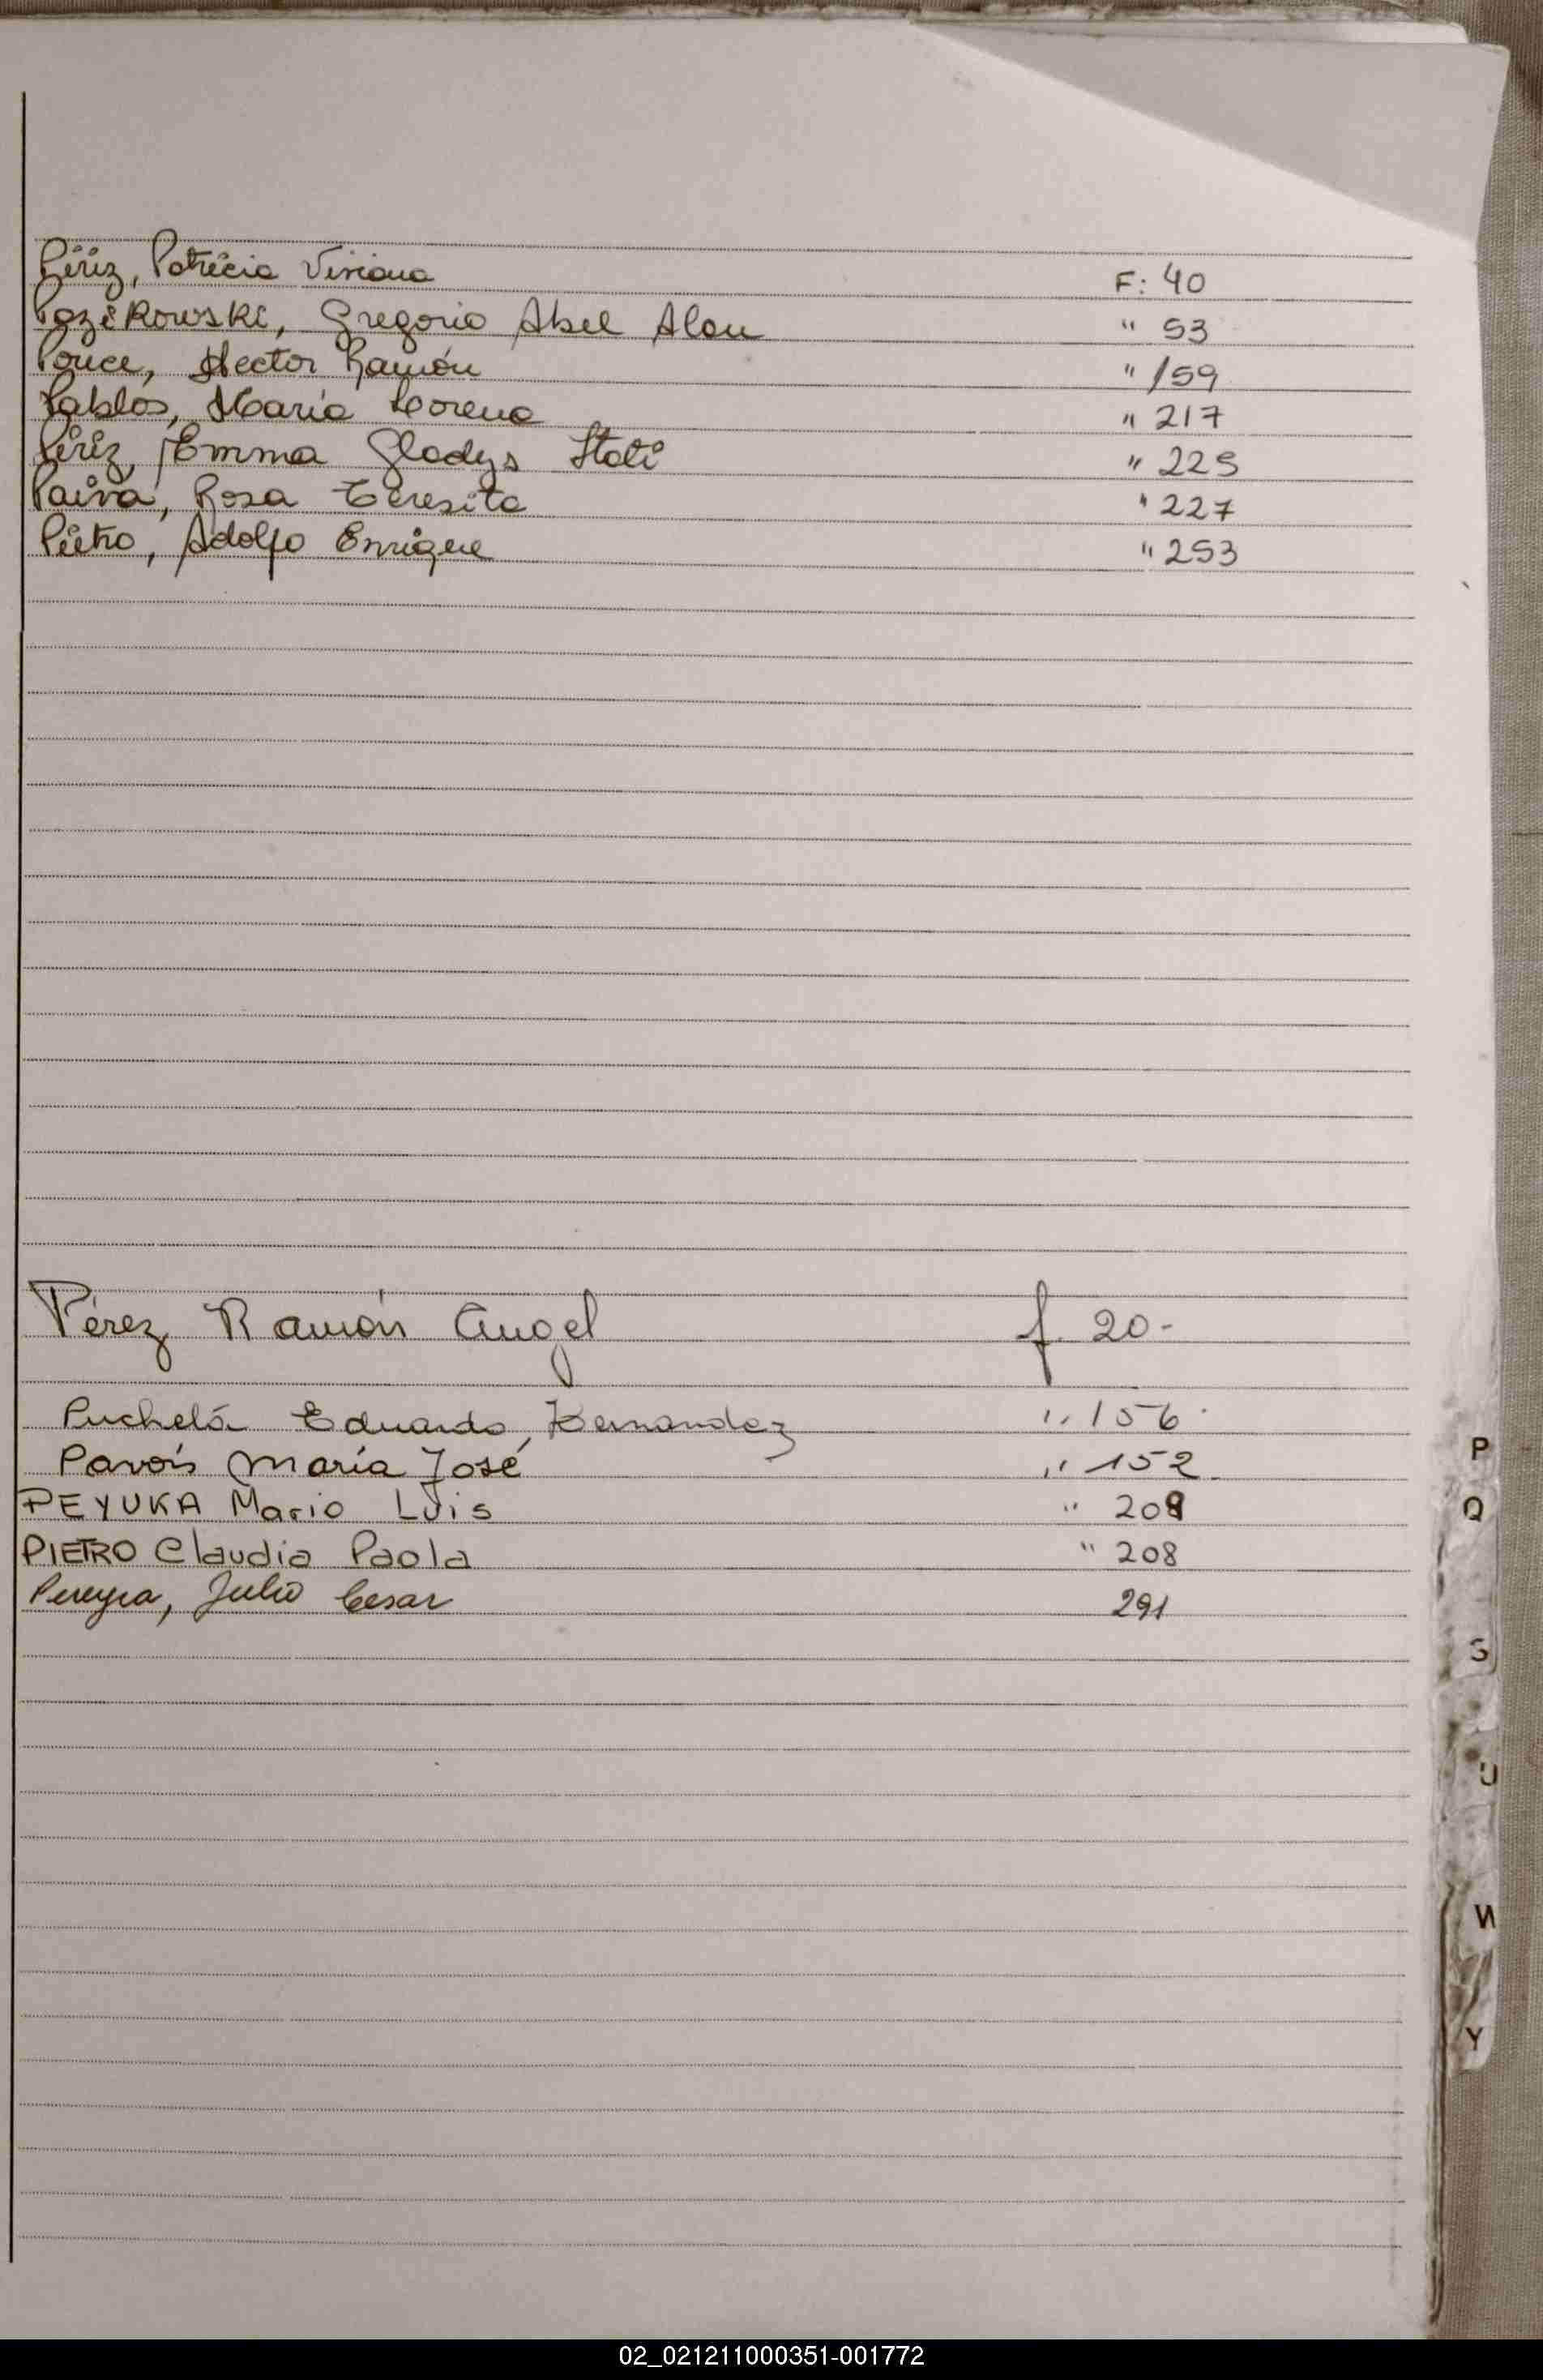 Pérez, Patricia Viviana F: 40
Pozikowski, Gregorio Abel Alan " 53
Ponce, Hector Ramón " 159
Pablos, María Lorena " 217
Pérez, Emma Gladys Stati " 225
Paiva, Rosa Teresita " 227
Pietro, Adolfo Enrique " 253
Pérez Ramón Angel f. 20-
Puchelá Eduardo, Hernandez " 156
Pavón María José " 152
PEYUKA Mario Luis " 208
PIETRO Claudia Paola " 208
Pereyra, Julio Cesar 291
P
Q
S
U
W
Y
02_021211000351-001772